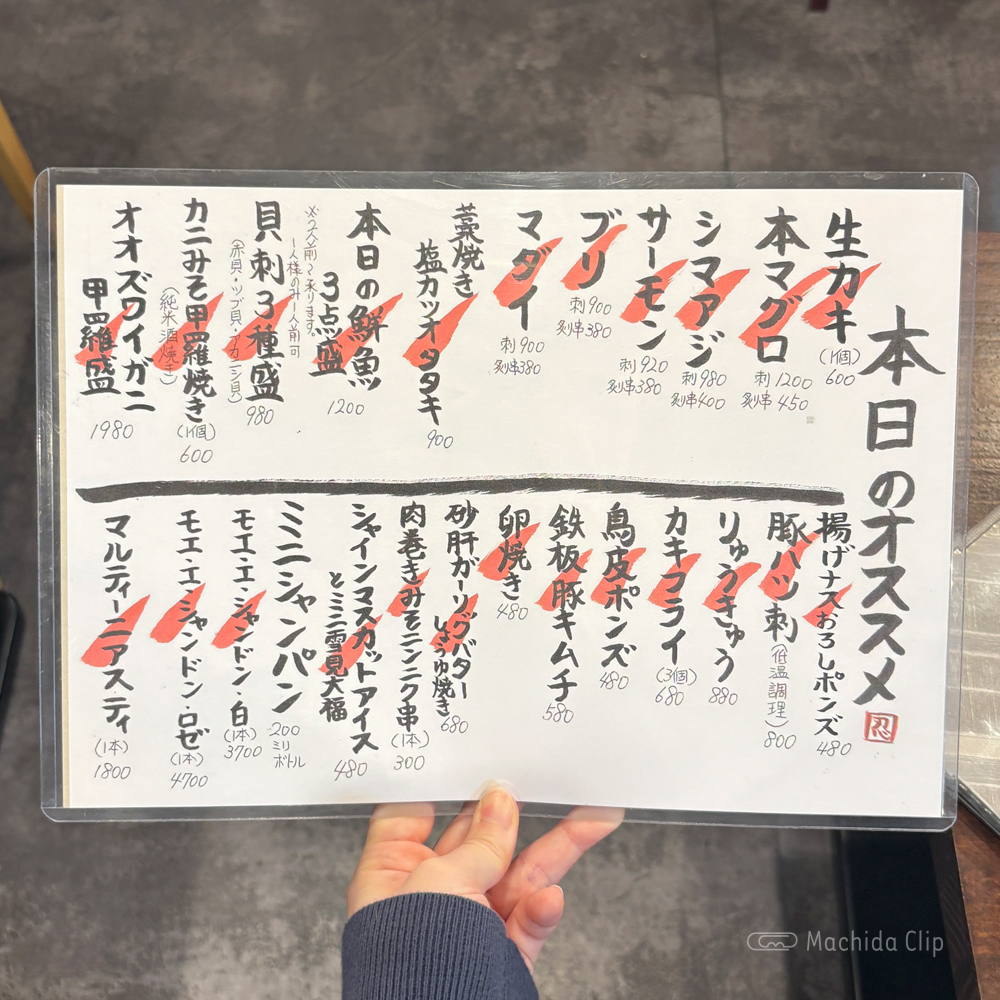 本日のオススメ
忍
生カキ
(1個)
600
本マグロ
刺 1200
炙串 450
シマアジ
刺 980
炙串 400
サーモン
刺 920
炙串 380
ブリ
刺 900
炙串 380
マダイ
刺 900
炙串 380
藁焼き
塩カツオタタキ
900
本日の鮮魚
3点盛
1200
※2人前〜承ります。
一人様のみ一人前可
貝刺3種盛
(赤貝・ツブ貝・アカニシ貝)
980
カニみそ甲羅焼き
(純米酒焼き)
(1個)
600
オオズワイガニ
甲羅盛
1980
揚げナスおろしポンズ
480
豚ハツ刺
(低温調理)
800
りゅうきゅう
880
カキフライ
(3個)
680
鳥皮ポンズ
480
鉄板豚キムチ
580
卵焼き
480
砂肝ガーリックバター
しょうゆ焼き
680
肉巻きみそニンニク串
(1本)
300
シャインマスカットアイス
とミニ雪見大福
480
ミニシャンパン
200
ミリ
ボトル
モエ・エ・シャンドン・白
(1本)
3700
モエ・エ・シャンドン・ロゼ
(1本)
4700
マルティーニアスティ
(1本)
1800
Machida Clip